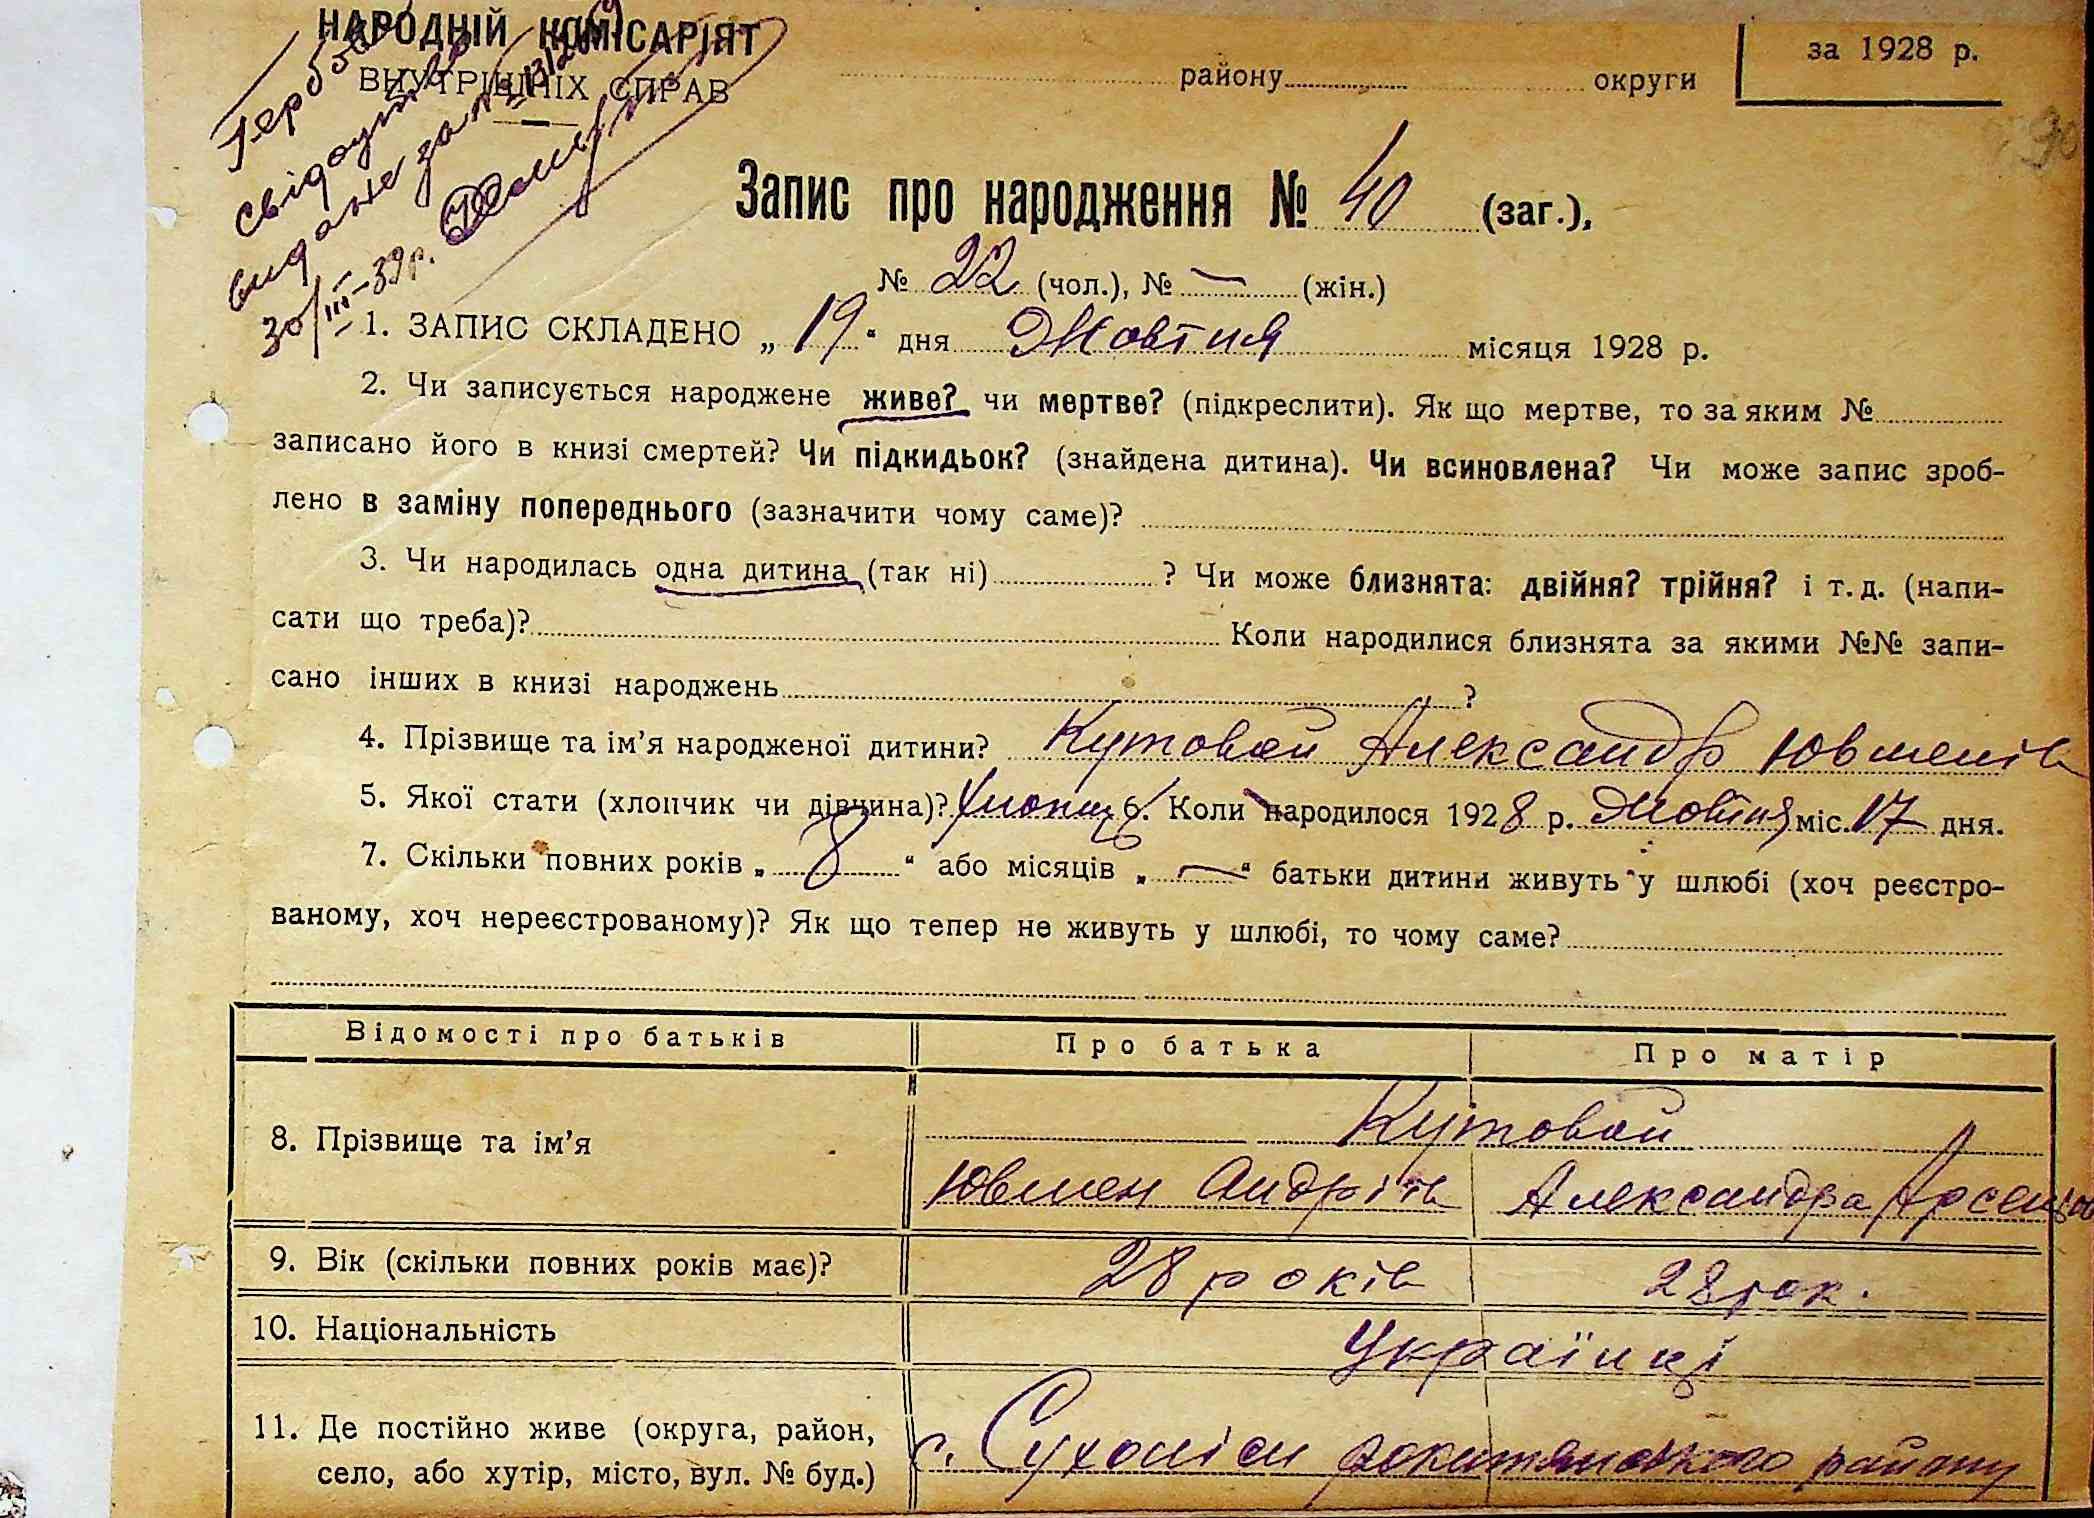 НАРОДНІЙ КОМІСАРІЯТ
ВНУТРІШНІХ СПРАВ
Герб
свідоцтво
видане за №
30/III-39р.
району округи
за 1928 р.
Запис про народження № 40 (заг.),
№ 22 (чол.), № — (жін.)
1. ЗАПИС СКЛАДЕНО „ 19 “ дня Жовтня місяця 1928 р.
2. Чи записується народжене живе? чи мертве? (підкреслити). Як що мертве, то за яким №
записано його в книзі смертей? Чи підкидьок? (знайдена дитина). Чи всиновлена? Чи може запис зроб-
лено в заміну попереднього (зазначити чому саме)?
3. Чи народилась одна дитина (так ні) ? Чи може близнята: двійня? трійня? і т. д. (напи-
сати що треба)? Коли народилися близнята за якими №№ запи-
сано інших в книзі народжень ?
4. Прізвище та ім’я народженої дитини? Кутовой Александр Ювменів
5. Якої стати (хлопчик чи дівчина)? Хлопец 6. Коли народилося 1928 р. Жовтня міс. 17 дня.
7. Скільки повних років „ 8 “ або місяців „ — “ батьки дитини живуть у шлюбі (хоч реєстро-
ваному, хоч нереєстрованому)? Як що тепер не живуть у шлюбі, то чому саме?
Відомості про батьків Про батька Про матір
8. Прізвище та ім’я Кутовой
Ювмен Андріїв Александра Арсеніов
9. Вік (скільки повних років має)? 28 років 28 рок.
10. Національність Українці
11. Де постійно живе (округа, район, село, або хутір, місто, вул. № буд.) с. Сухоліси рокитянського району